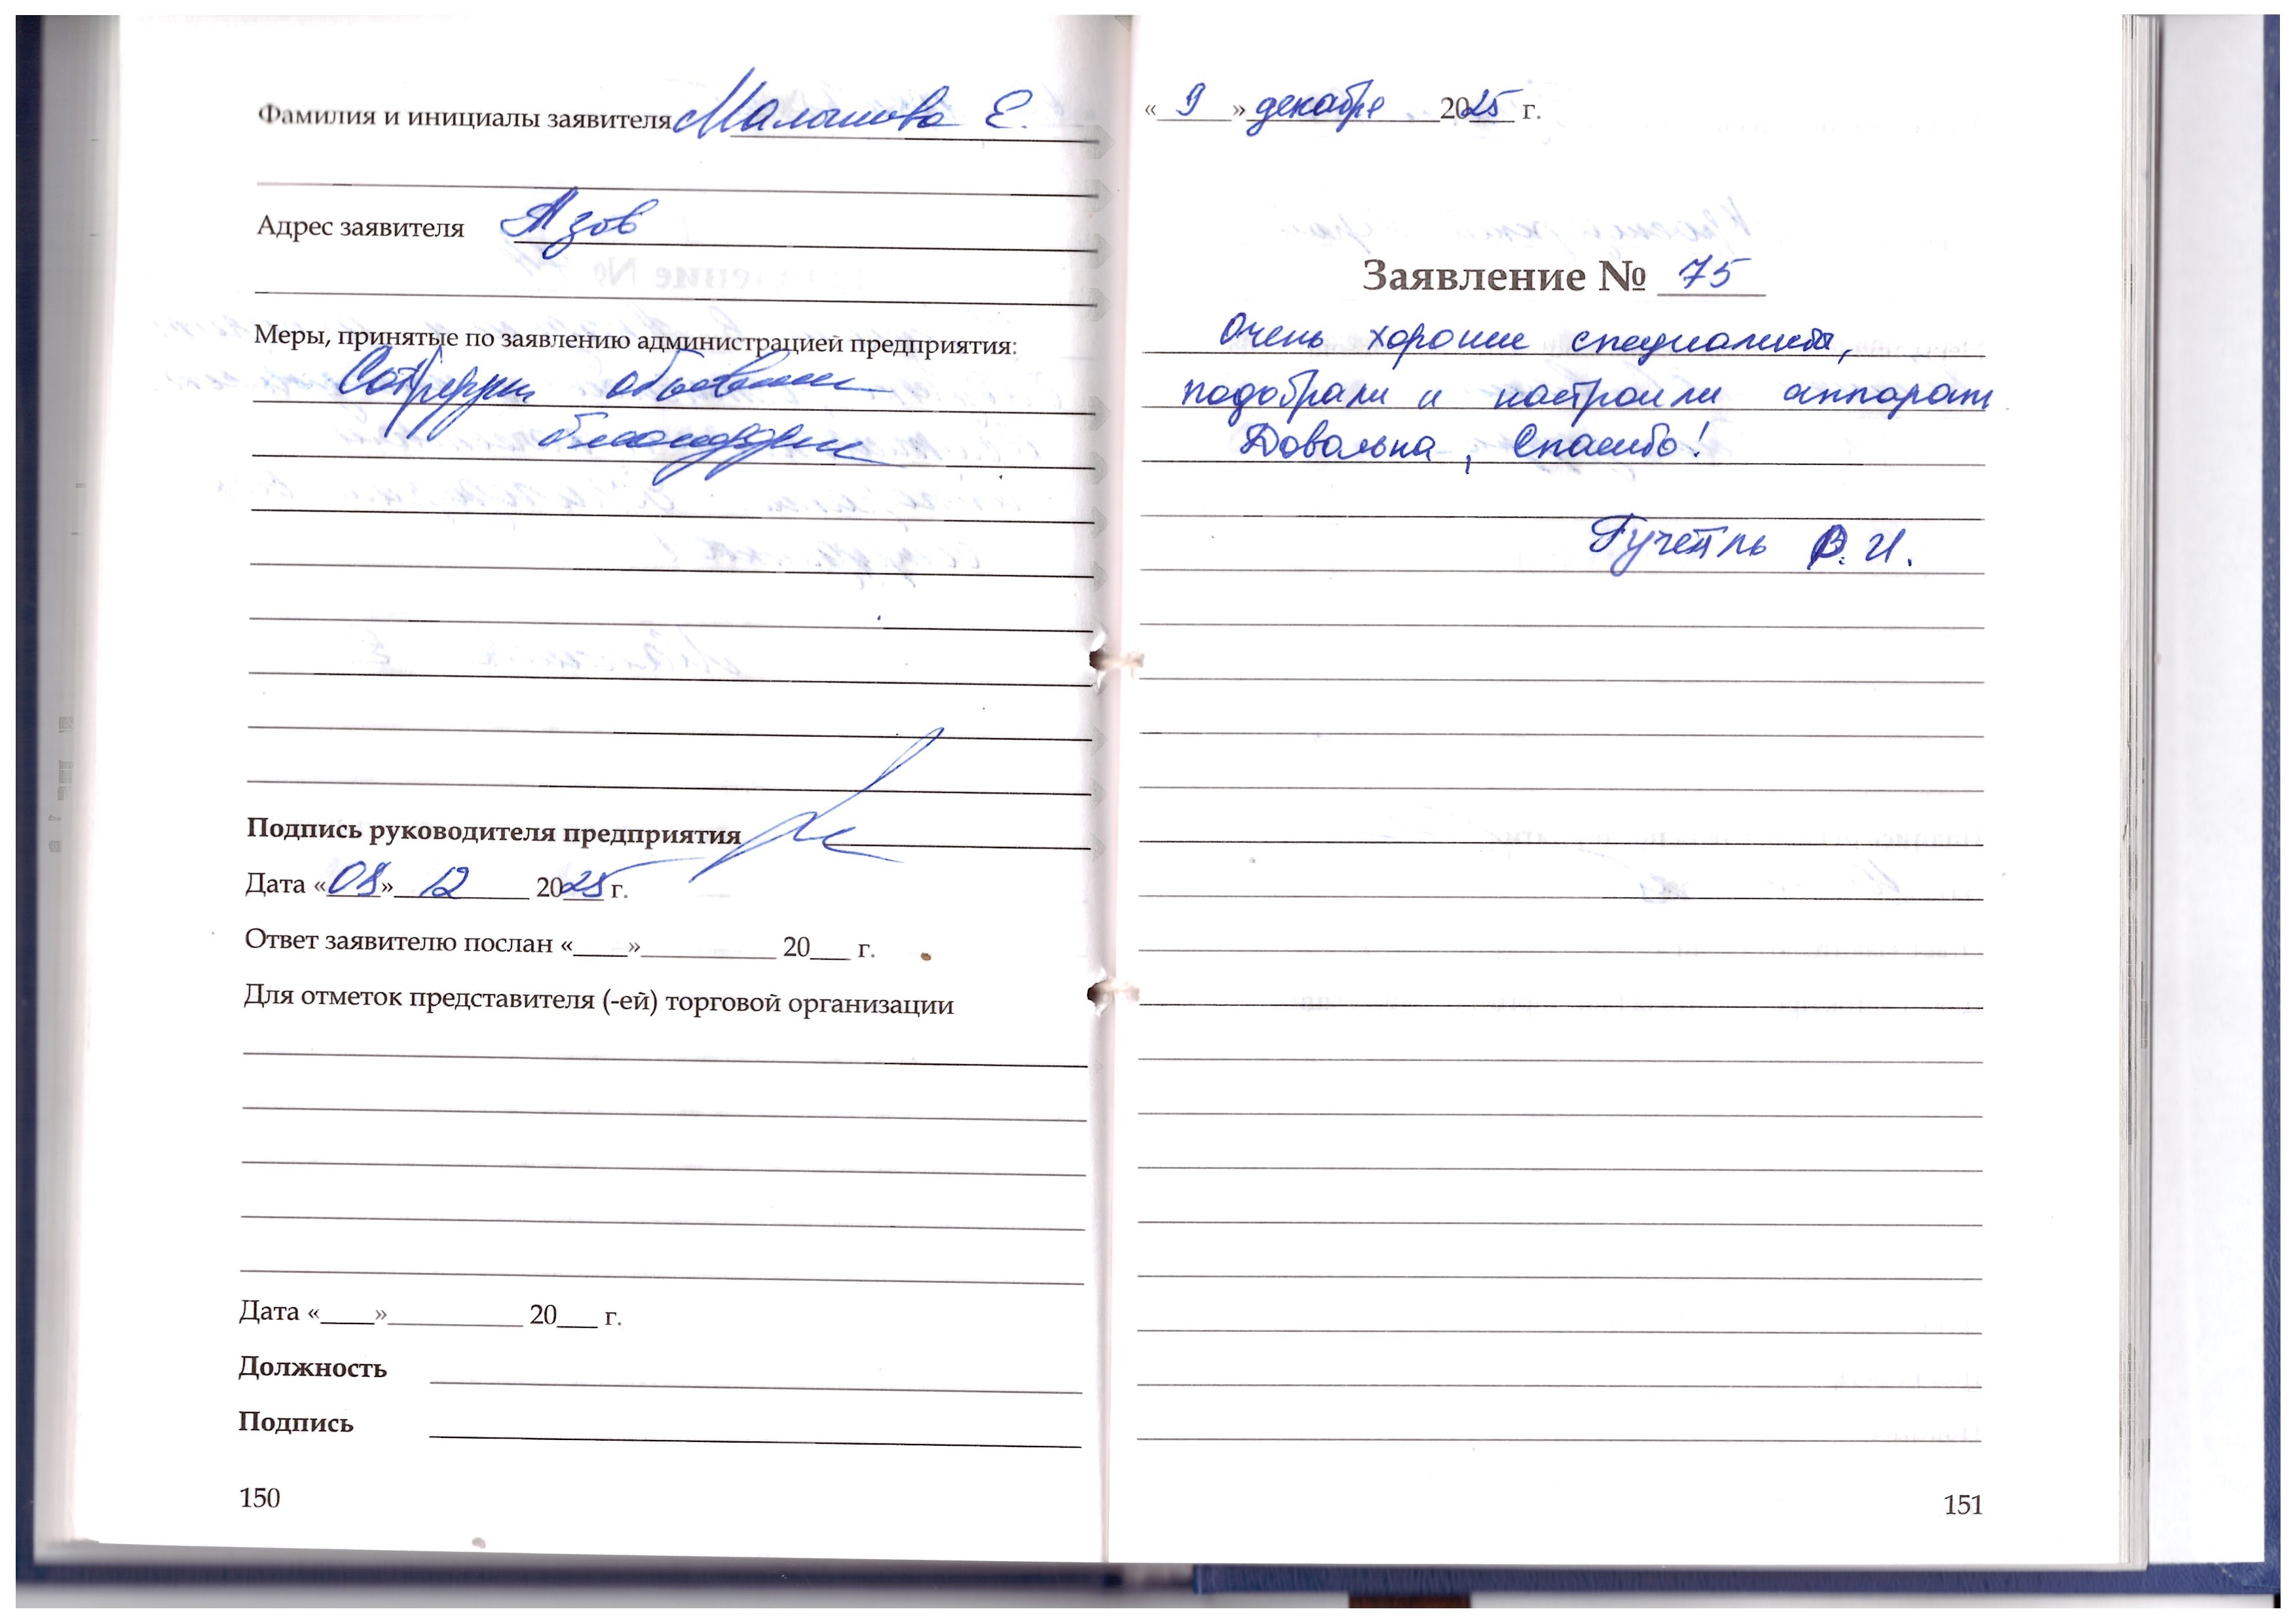 Фамилия и инициалы заявителя Малышева Е.
Адрес заявителя Азов
Меры, принятые по заявлению администрацией предприятия:
Сотрудникам объявлена
благодарность
Подпись руководителя предприятия
Дата «08» 12 2025 г.
Ответ заявителю послан «____»__________ 20___ г.
Для отметок представителя (-ей) торговой организации
Дата «____»__________ 20___ г.
Должность
Подпись
150
« 9 » декабря 2025 г.
Заявление № 75
Очень хорошие специалисты,
подобрали и настроили аппарат
Довольна, Спасибо!
Гучетль В. И.
151